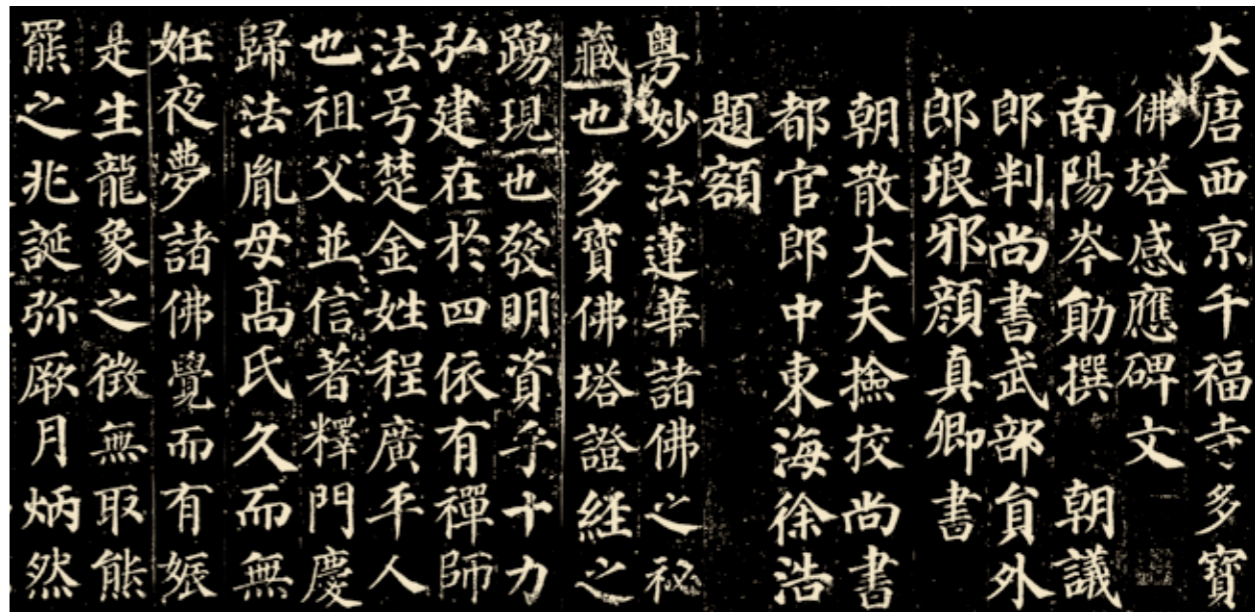 大唐西京千福寺多寶
佛塔感應碑文
南陽岑勛撰　朝議
郎判尚書武部員外
郎琅邪顏真卿書
朝散大夫撿挍尚書
都官郎中東海徐浩
題額
粵妙法蓮華諸佛之秘
藏也多寶佛塔證經之
踴現也發明資乎十力
弘建在於四依有禪師
法号楚金姓程廣平人
也祖父並信著釋門慶
歸法胤母高氏久而無
姙夜夢諸佛覺而有娠
是生龍象之徵無取熊
羆之兆誕弥厥月炳然